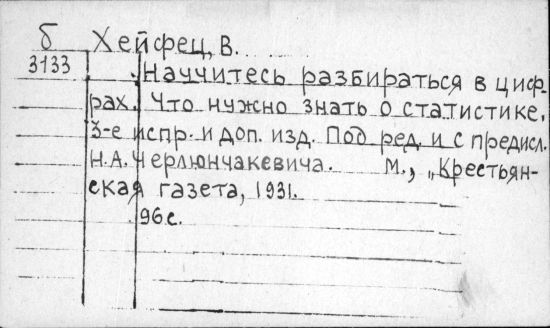 б Хейфец, В.
3133
Научитесь разбираться в циф-
рах. Что нужно знать о статистике.
3-е испр. и доп. изд. Под ред. и с предисл.
Н.А. Черлюнчакевича. М., „Крестьян-
ская газета, 1931.
96 с.